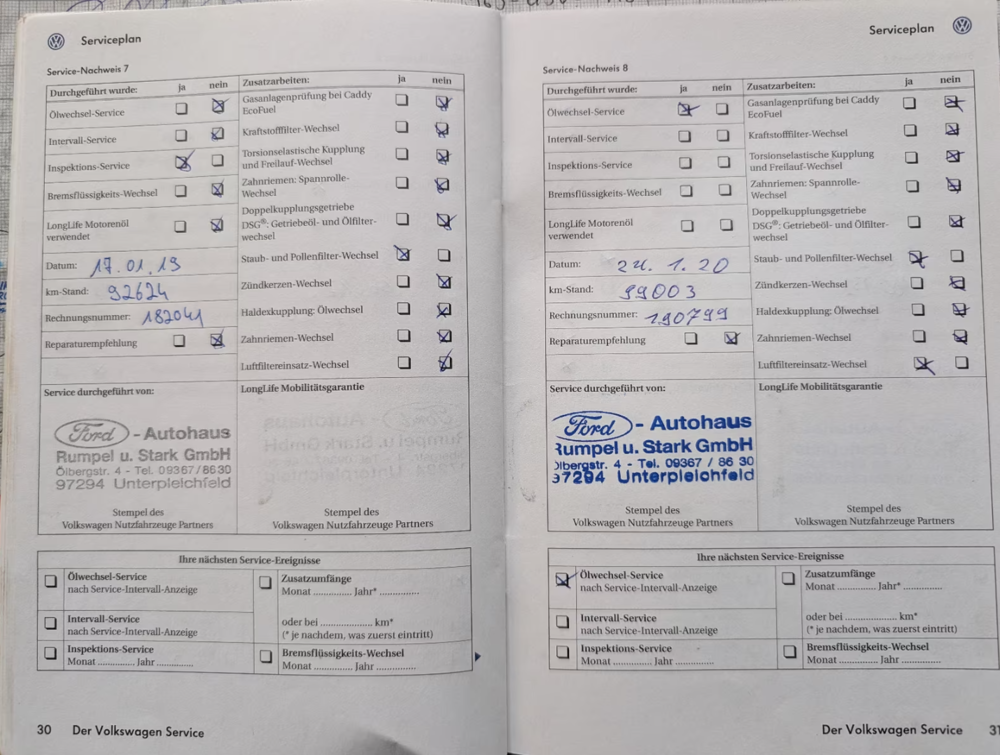 Serviceplan
Service-Nachweis 7
Durchgeführt wurde: ja nein Zusatzarbeiten: ja nein
Ölwechsel-Service Gasanlagenprüfung bei Caddy
EcoFuel
Intervall-Service Kraftstofffilter-Wechsel
Inspektions-Service Torsionselastische Kupplung
und Freilauf-Wechsel
Bremsflüssigkeits-Wechsel Zahnriemen: Spannrolle-
Wechsel
LongLife Motorenöl
verwendet
Doppelkupplungsgetriebe
DSG®: Getriebeöl- und Ölfilter-
wechsel
Datum: 17.01.19 Staub- und Pollenfilter-Wechsel
km-Stand: 92624 Zündkerzen-Wechsel
Rechnungsnummer: 182041 Haldexkupplung: Ölwechsel
Reparaturempfehlung Zahnriemen-Wechsel
Luftfiltereinsatz-Wechsel
Service durchgeführt von: LongLife Mobilitätsgarantie
Ford - Autohaus
Rumpel u. Stark GmbH
Ölbergstr. 4 - Tel. 09367/86 30
97294 Unterpleichfeld
Stempel des Stempel des
Volkswagen Nutzfahrzeuge Partners Volkswagen Nutzfahrzeuge Partners
Ihre nächsten Service-Ereignisse
Ölwechsel-Service Zusatzumfänge
nach Service-Intervall-Anzeige Monat .............. Jahr* ..............
Intervall-Service oder bei .................... km*
nach Service-Intervall-Anzeige (* je nachdem, was zuerst eintritt)
Inspektions-Service Bremsflüssigkeits-Wechsel
Monat ............. Jahr ............. Monat .............. Jahr ..............
30 Der Volkswagen Service
Serviceplan
Service-Nachweis 8
Durchgeführt wurde: ja nein Zusatzarbeiten: ja nein
Ölwechsel-Service Gasanlagenprüfung bei Caddy
EcoFuel
Intervall-Service Kraftstofffilter-Wechsel
Inspektions-Service Torsionselastische Kupplung
und Freilauf-Wechsel
Bremsflüssigkeits-Wechsel Zahnriemen: Spannrolle-
Wechsel
LongLife Motorenöl
verwendet
Doppelkupplungsgetriebe
DSG®: Getriebeöl- und Ölfilter-
wechsel
Datum: 24.1.20 Staub- und Pollenfilter-Wechsel
km-Stand: 99003 Zündkerzen-Wechsel
Rechnungsnummer: 190799 Haldexkupplung: Ölwechsel
Reparaturempfehlung Zahnriemen-Wechsel
Luftfiltereinsatz-Wechsel
Service durchgeführt von: LongLife Mobilitätsgarantie
Ford - Autohaus
Rumpel u. Stark GmbH
Ölbergstr. 4 - Tel. 09367 / 86 30
97294 Unterpleichfeld
Stempel des Stempel des
Volkswagen Nutzfahrzeuge Partners Volkswagen Nutzfahrzeuge Partners
Ihre nächsten Service-Ereignisse
Ölwechsel-Service Zusatzumfänge
nach Service-Intervall-Anzeige Monat .............. Jahr* ..............
Intervall-Service oder bei .................... km*
nach Service-Intervall-Anzeige (* je nachdem, was zuerst eintritt)
Inspektions-Service Bremsflüssigkeits-Wechsel
Monat ............. Jahr ............. Monat .............. Jahr ..............
Der Volkswagen Service 31